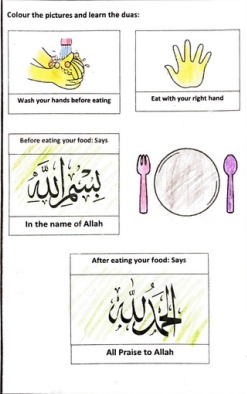 Colour the pictures and learn the duas:
Wash your hands before eating
Eat with your right hand
Before eating your food: Says
بسم الله
In the name of Allah
After eating your food: Says
الحمد لله
All Praise to Allah